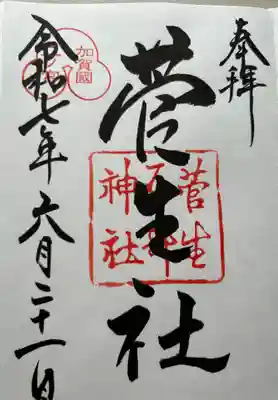 奉拝
菅生社
菅生
石部
神社
加賀國
令和七年六月二十一日